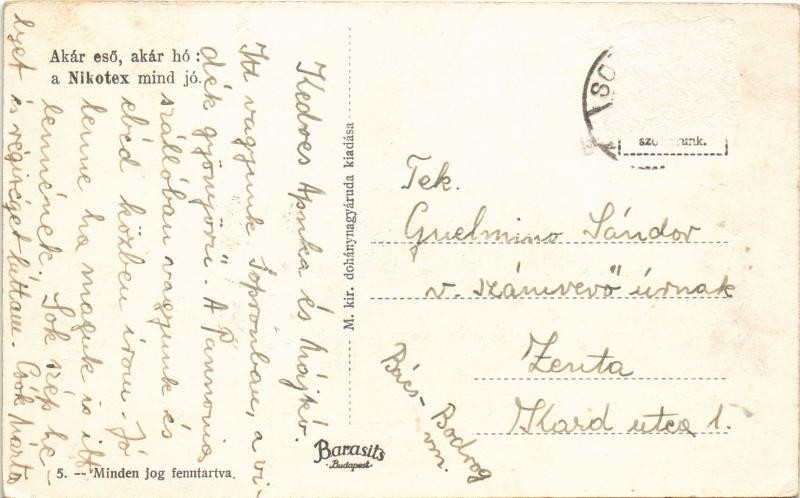 Akár eső, akár hó :
a Nikotex mind jó.
Kedves Apuka és Májkó.
Itt vagyunk Sopronban, a vi-
dék gyönyörű. A Pannonia
szállóban vagyunk és
ebéd közben írom. Jó
lenne ha maguk is itt
lennének. Sok szép he-
lyet és régiséget láttam. Csók Márta
5. — Minden jog fenntartva.
M. kir. dohánynagyáruda kiadása
Barasits
Budapest
SO
Tek.
Guelmino Sándor
v. számvevő úrnak
Zenta
Kard utca 1.
Bács-Bodrog
vm.